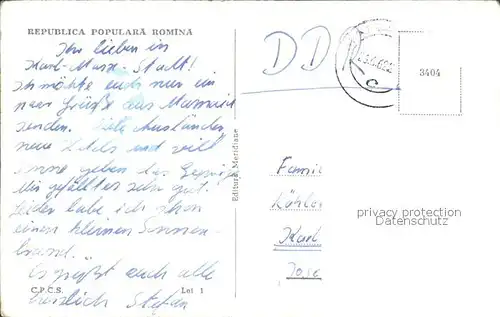 REPUBLICA POPULARĂ ROMÎNA
Ihr lieben in
Karl-Marx-Stadt!
Ich möchte euch nur ein
paar Grüße aus Mamaia
senden. Viele Ausländer,
neue Hotels und viel
Sonne geben das Gepräge
Mir gefällt es sehr gut.
Leider habe ich schon
einen kleinen Sonnen-
brand.
Es grüßt euch alle
herzlich Stefan
C.P.C.S. Lei 1
Editura Meridiane
DD
C
3404
Famil
Köhler
Karl
privacy protection
Datenschutz